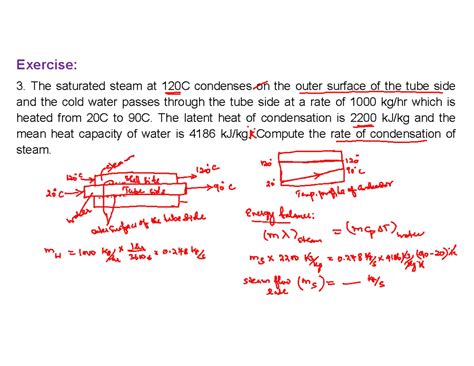 Exercise:
3. The saturated steam at 120C condenses on the outer surface of the tube side
and the cold water passes through the tube side at a rate of 1000 kg/hr which is
heated from 20C to 90C. The latent heat of condensation is 2200 kJ/kg and the
mean heat capacity of water is 4186 kJ/kg.K Compute the rate of condensation of
steam.
steam
120°C
Shell side
120°C
20°C
Tube side
90°C
water
outer surface of the tube side
120°
120°C
20°
90°C
Temp. profile of
Energy balance:
(m λ)steam = (m Cp ΔT)water
mw = 1000 kg/hr × 1hr/3600s = 0.278 kg/s
ms × 2200 kJ/kg = 0.278 kg/s × 4186 (90-20) K
steam flow rate (ms) = — kg/s